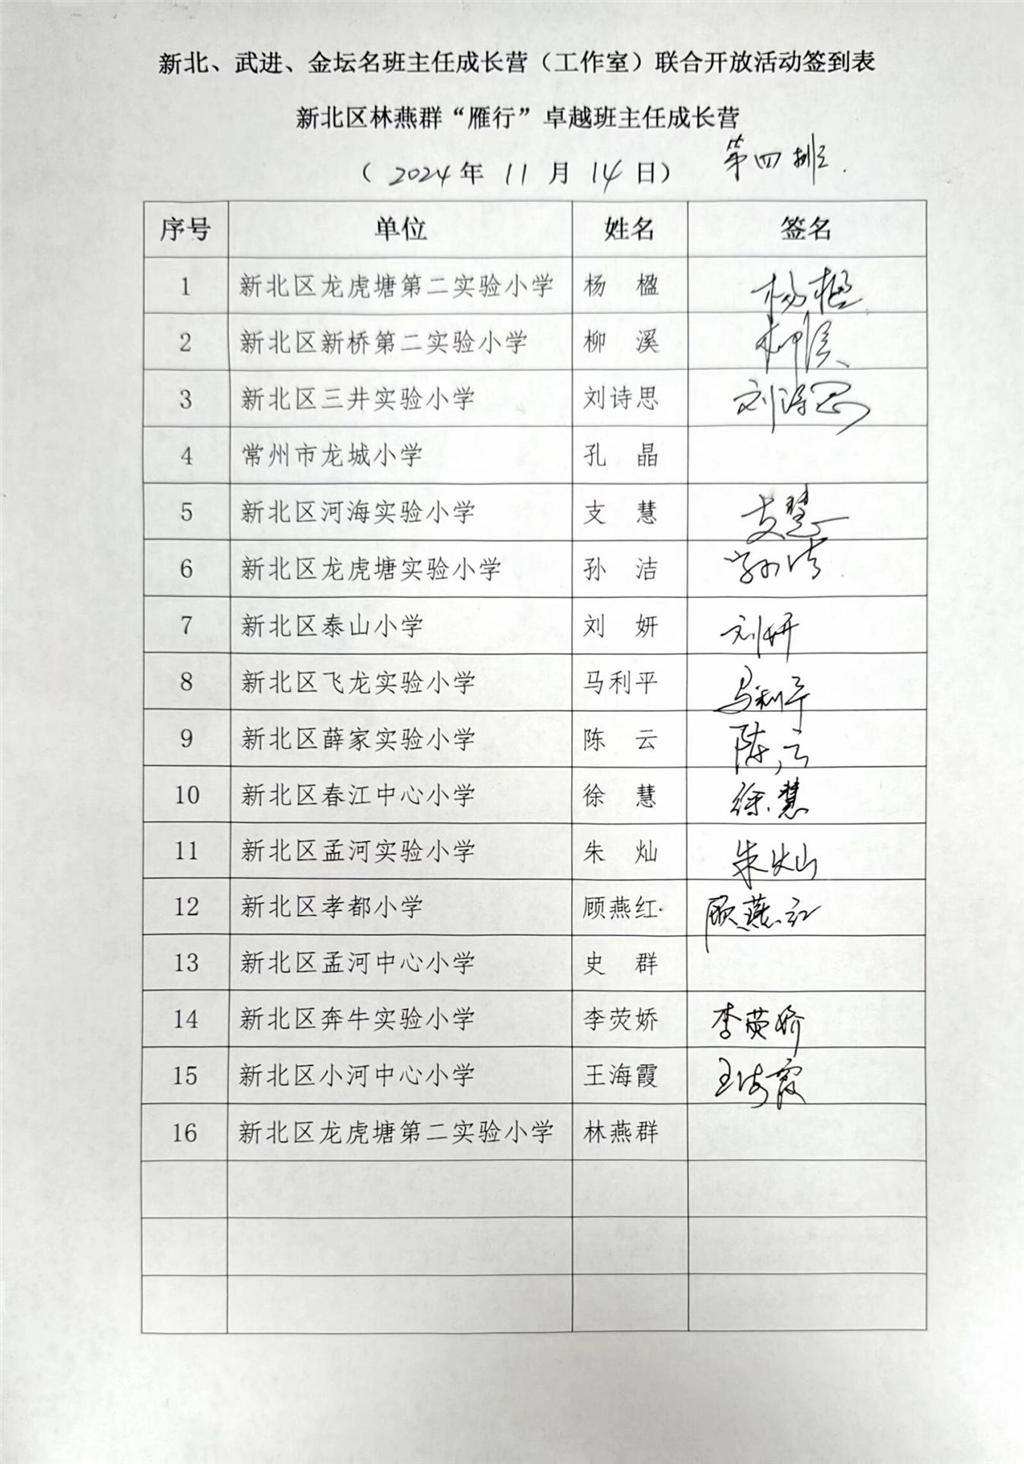 新北、武进、金坛名班主任成长营（工作室）联合开放活动签到表
新北区林燕群“雁行”卓越班主任成长营
（ 2024 年 11 月 14 日） 第四排.
序号 单位 姓名 签名
1 新北区龙虎塘第二实验小学 杨 楹 杨楹
2 新北区新桥第二实验小学 柳 溪 柳溪
3 新北区三井实验小学 刘诗思 刘诗思
4 常州市龙城小学 孔 晶
5 新北区河海实验小学 支 慧 支慧
6 新北区龙虎塘实验小学 孙 洁 孙洁
7 新北区泰山小学 刘 妍 刘妍
8 新北区飞龙实验小学 马利平 马利平
9 新北区薛家实验小学 陈 云 陈云
10 新北区春江中心小学 徐 慧 徐慧
11 新北区孟河实验小学 朱 灿 朱灿
12 新北区孝都小学 顾燕红 顾燕红
13 新北区孟河中心小学 史 群
14 新北区奔牛实验小学 李荧娇 李荧娇
15 新北区小河中心小学 王海霞 王海霞
16 新北区龙虎塘第二实验小学 林燕群